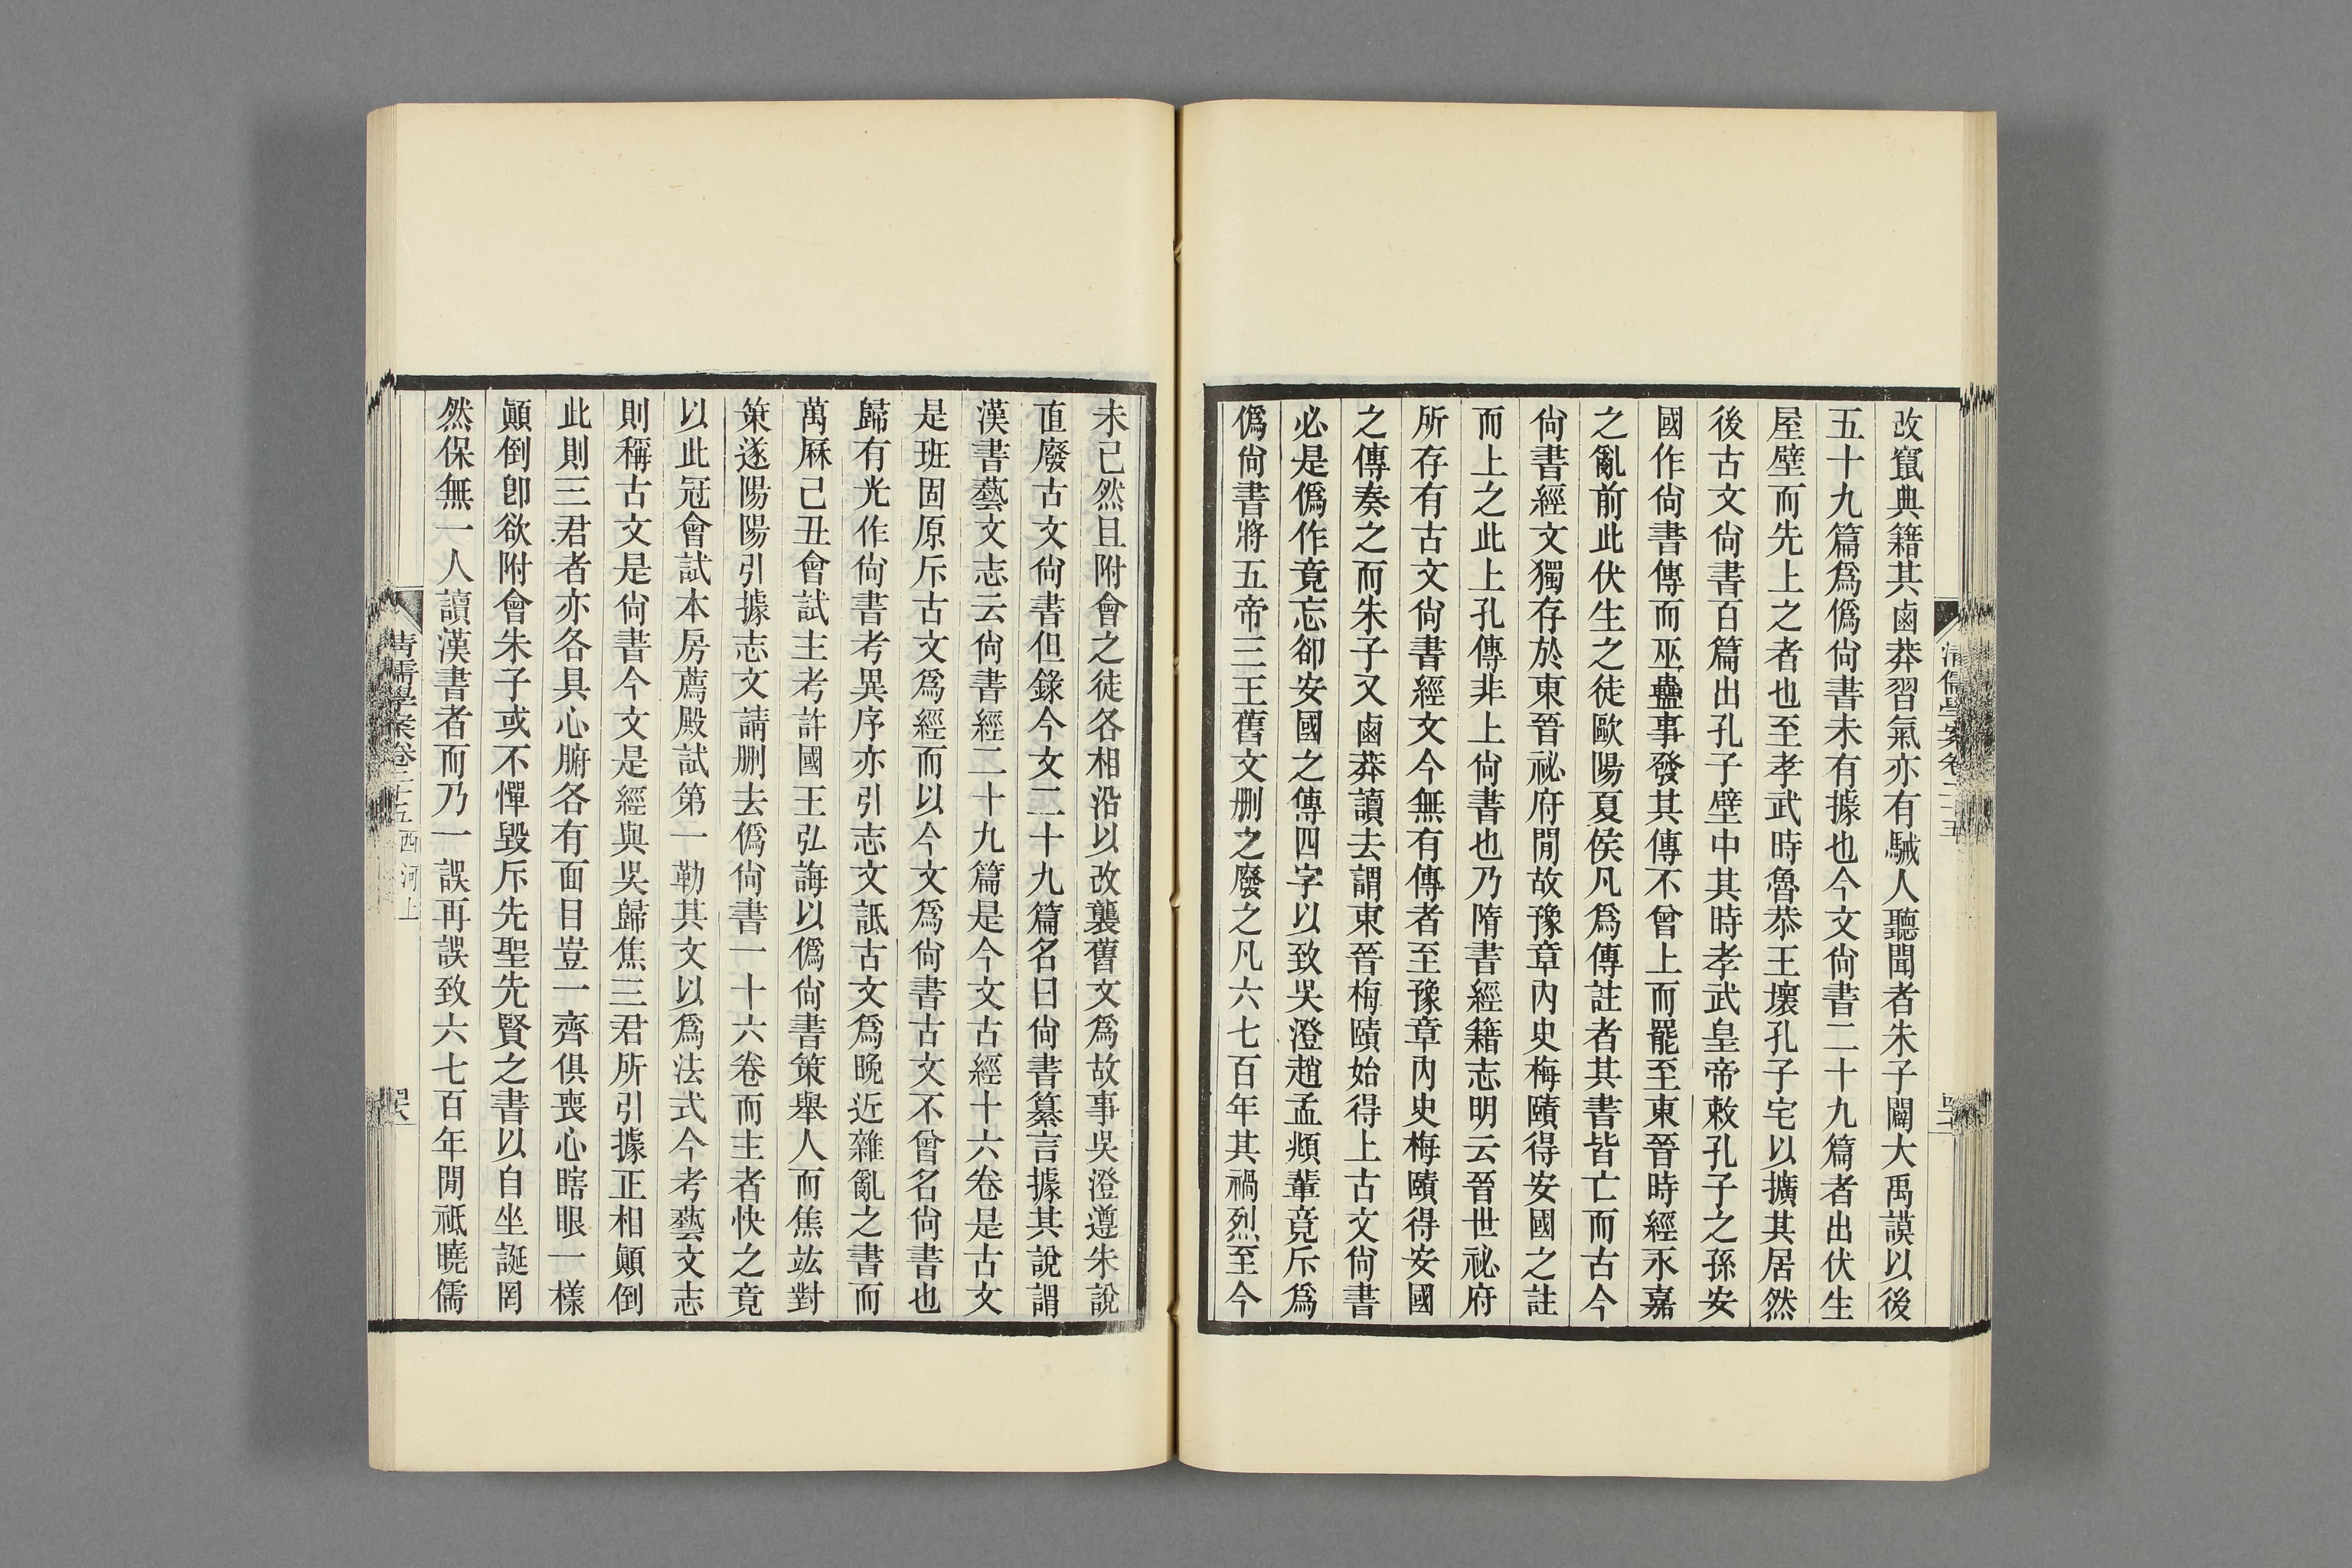 改竄典籍其鹵莽習氣亦有駴人聽聞者朱子闢大禹謨以後
五十九篇爲僞尙書未有據也今文尙書二十九篇者出伏生
屋壁而先上之者也至孝武時魯恭王壞孔子宅以擴其居然
後古文尙書百篇出孔子壁中其時孝武皇帝敕孔子之孫安
國作尙書傳而巫蠱事發其傳不曾上而罷至東晉時經永嘉
之亂前此伏生之徒歐陽夏侯凡爲傳註者其書皆亡而古今
尙書經文獨存於東晉祕府閒故豫章內史梅賾得安國之註
而上之此上孔傳非上尙書也乃隋書經籍志明云晉世祕府
所存有古文尙書經文今無有傳者至豫章內史梅賾得安國
之傳奏之而朱子又鹵莽讀去謂東晉梅賾始得上古文尙書
必是僞作竟忘卻安國之傳四字以致吳澄趙孟頫輩竟斥爲
僞尙書將五帝三王舊文刪之廢之凡六七百年其禍烈至今
清儒學案卷二十五
未已然且附會之徒各相沿以改襲舊文爲故事吳澄遵朱說
直廢古文尙書但錄今文二十九篇名曰尙書纂言據其說謂
漢書藝文志云尙書經二十九篇是今文古經十六卷是古文
是班固原斥古文爲經而以今文爲尙書古文不曾名尙書也
歸有光作尙書考異序亦引志文詆古文爲晚近雜亂之書而
萬厤己丑會試主考許國王弘誨以僞尙書策舉人而焦竑對
策遂陽陽引據志文請刪去僞尙書一十六卷而主者快之竟
以此冠會試本房薦殿試第一勒其文以爲法式今考藝文志
則稱古文是尙書今文是經與吳歸焦三君所引據正相顚倒
此則三君者亦各具心腑各有面目豈一齊俱喪心瞎眼一樣
顚倒卽欲附會朱子或不憚毀斥先聖先賢之書以自坐誕罔
然保無一人讀漢書者而乃一誤再誤致六七百年閒祗曉儒
清儒學案卷二十五 西河上